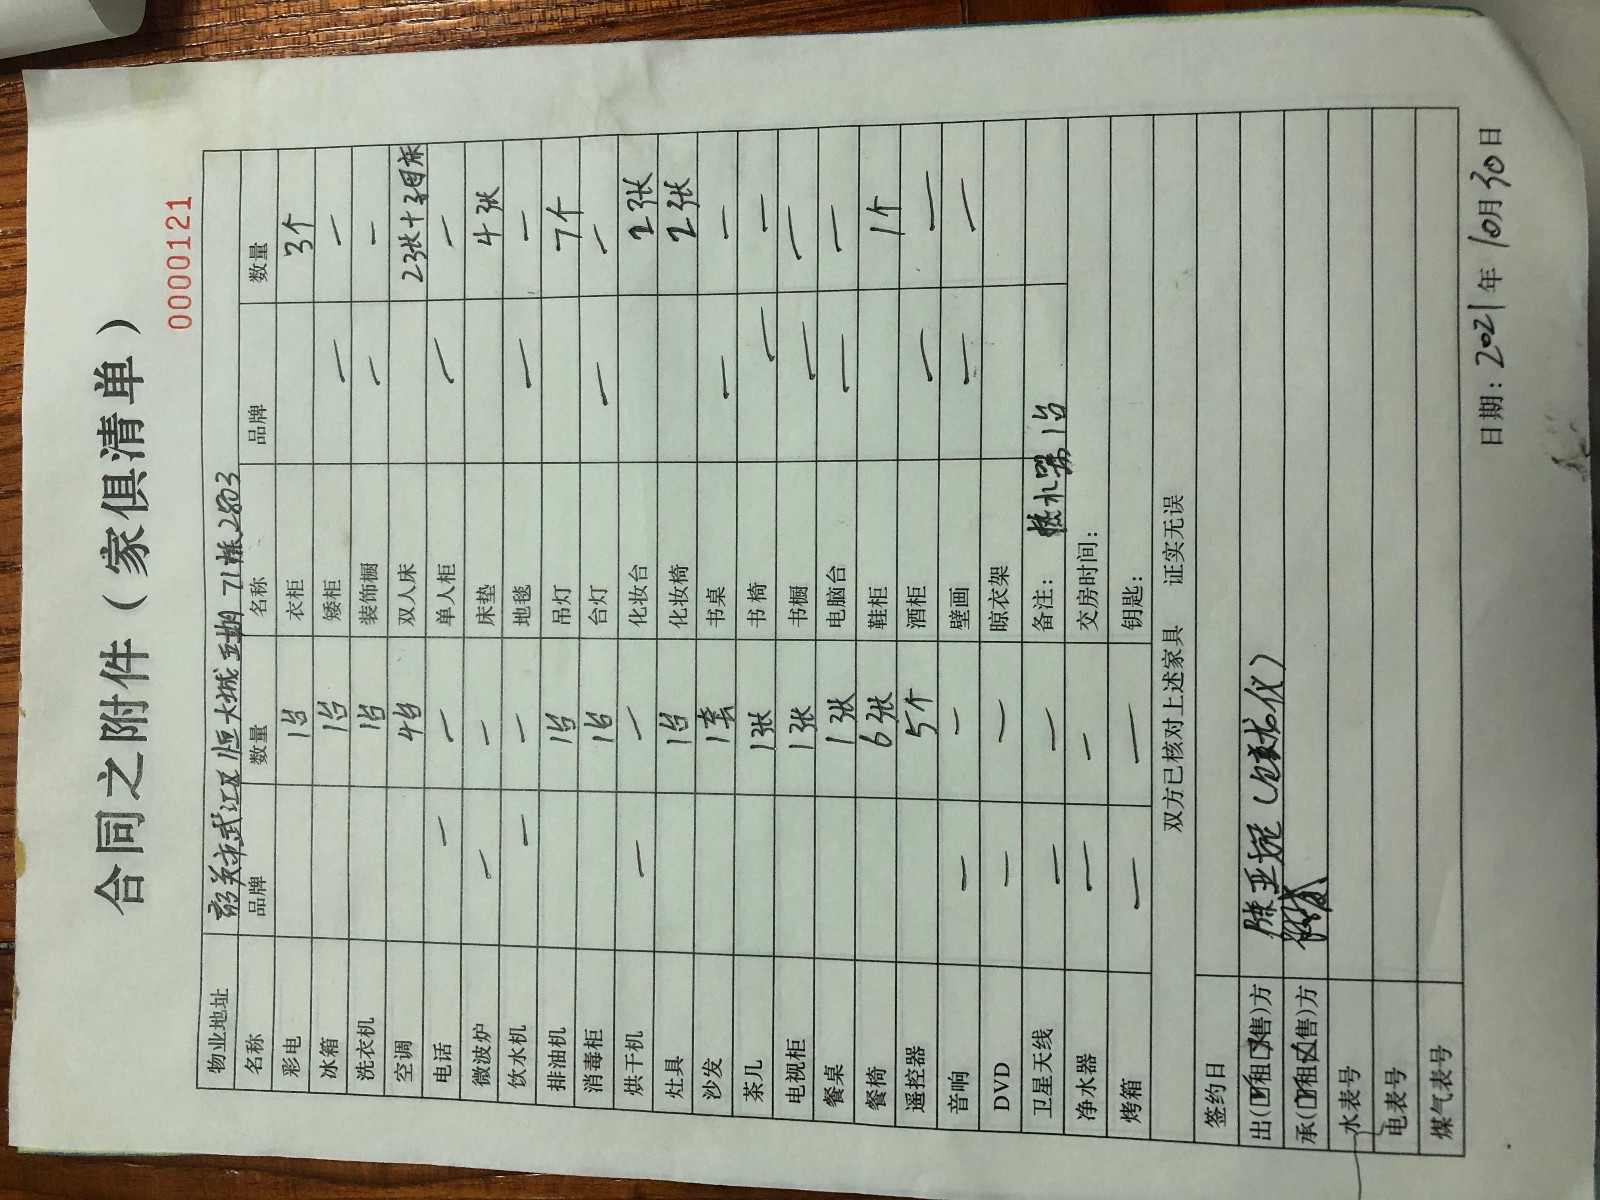 合同之附件（家俱清单）
0000121
物业地址 韶关市武江区恒大城五期 71栋2803
名称 品牌 数量 名称 品牌 数量
彩电 1台 衣柜 3个
冰箱 1台 矮柜 — —
洗衣机 1台 装饰橱 — —
空调 4台 双人床 2张+
电话 — — 单人柜 — —
微波炉 — — 床垫 4张
饮水机 — — 地毯 — —
排油机 1台 吊灯 7个
消毒柜 1台 台灯 — —
烘干机 — — 化妆台 2张
灶具 1台 化妆椅 2张
沙发 1套 书桌 — —
茶几 1张 书椅 — —
电视柜 1张 书橱 — —
餐桌 1张 电脑台 — —
餐椅 6张 鞋柜 1个
遥控器 5个 酒柜 — —
音响 — — 壁画 — —
DVD — — 晾衣架
卫星天线 — — 备注： 热水器1台
净水器 — — 交房时间：
烤箱 — — 钥匙：
双方已核对上述家具 证实无误
签约日
出(☑租☒售)方 陈亚
承(☑租☒售)方
水表号
电表号
煤气表号
日期：2021年10月30日